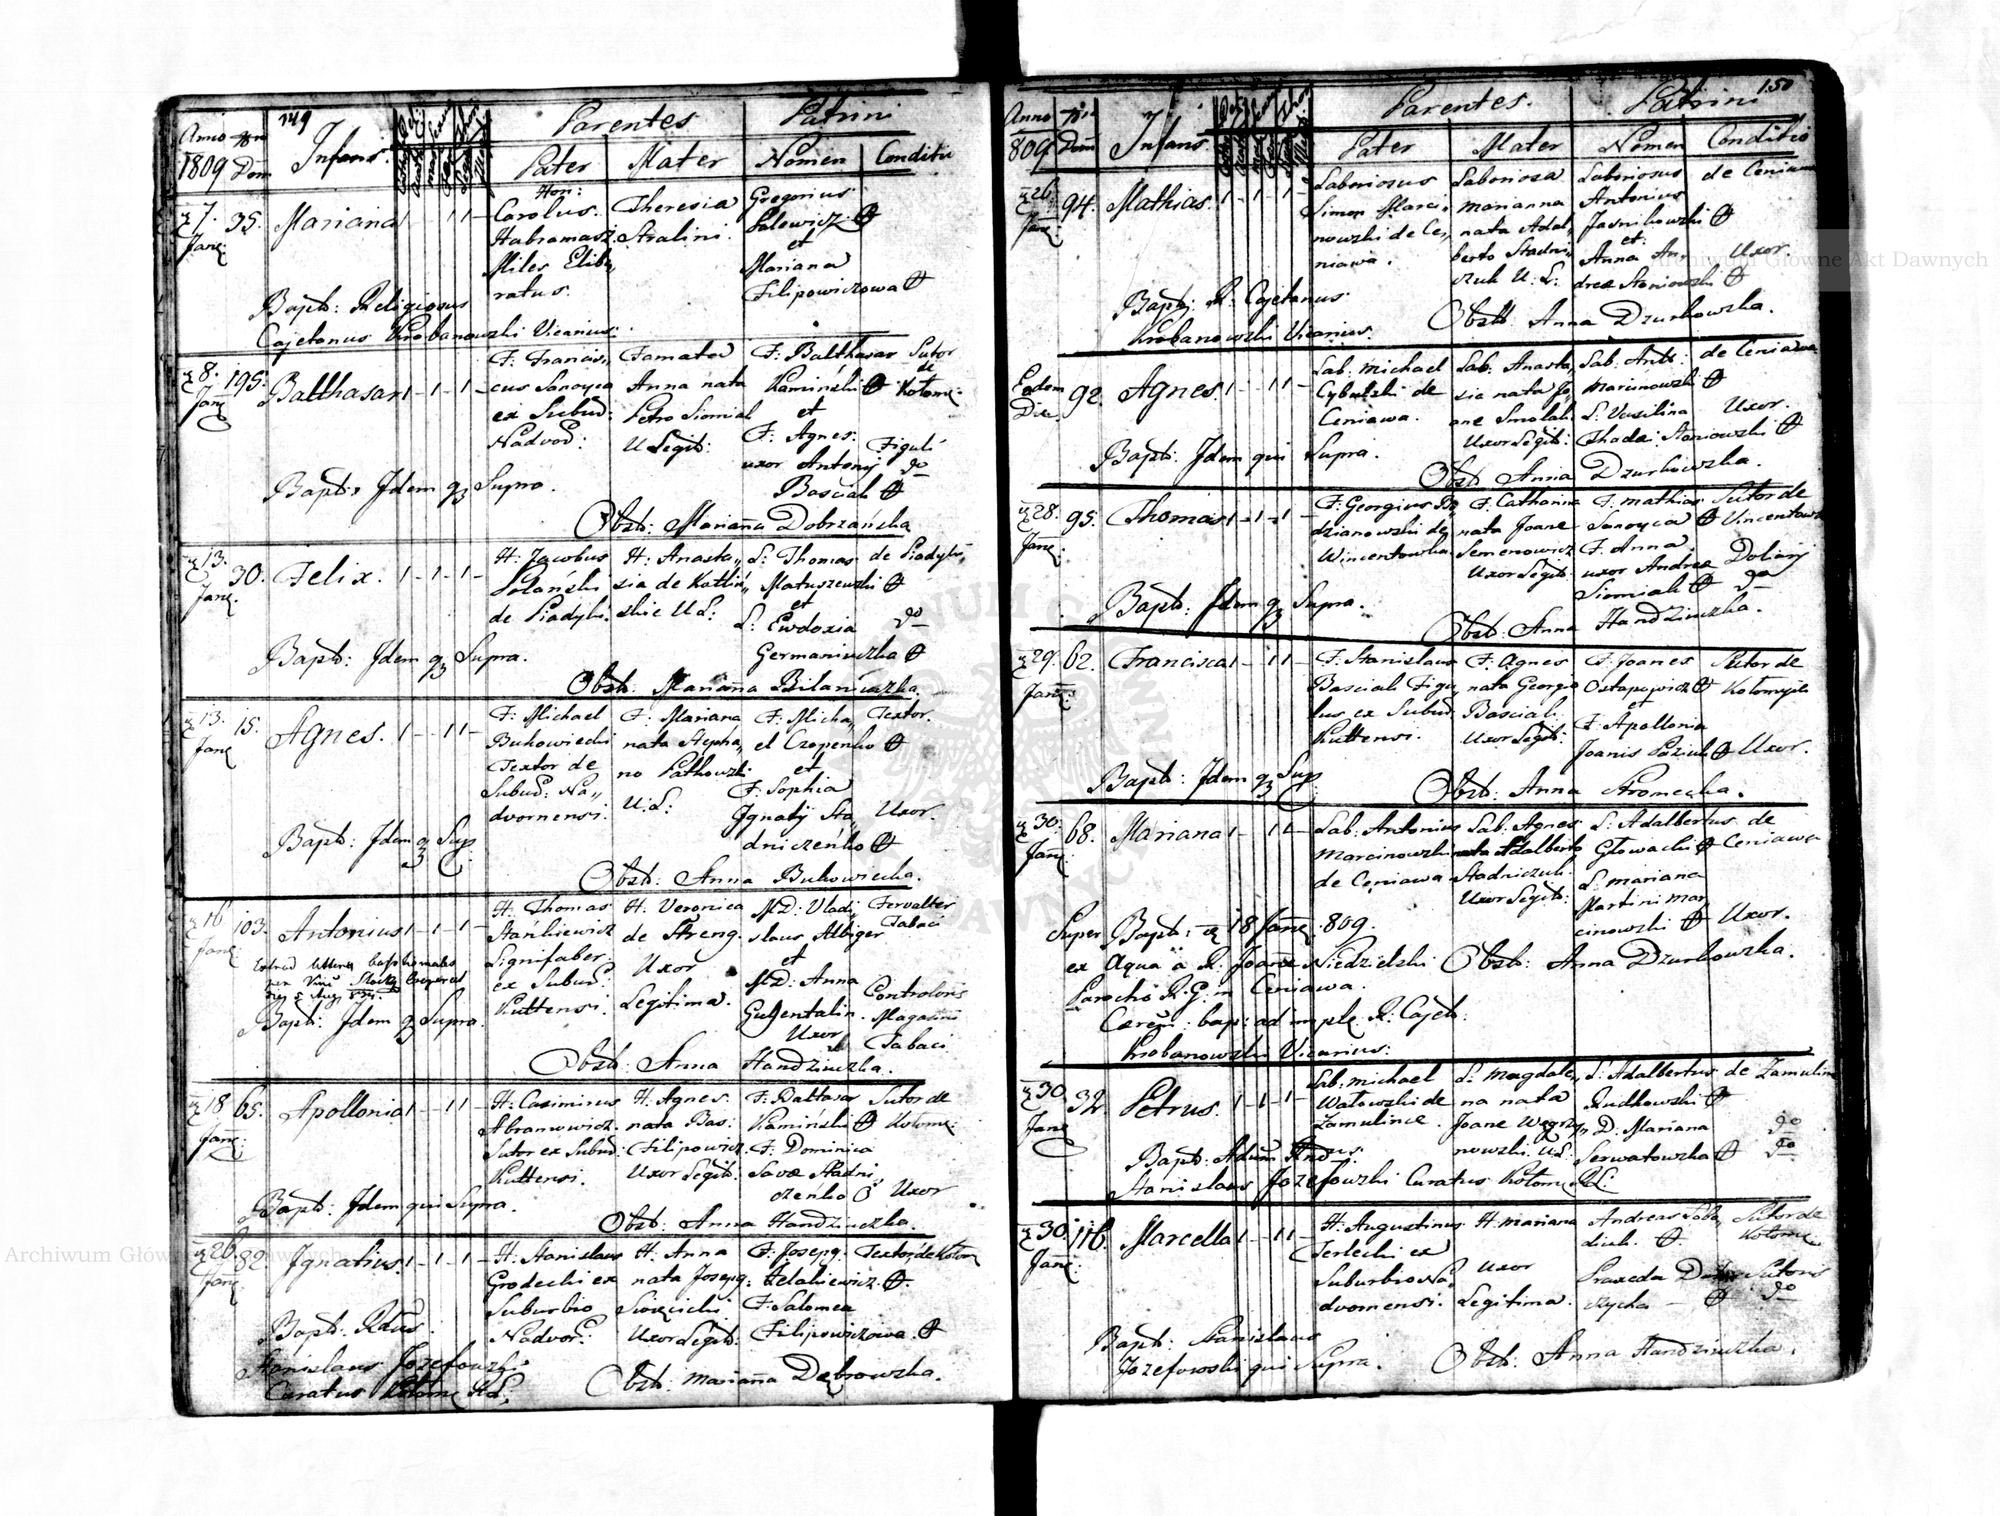 149
Anno 1809
Nrus Dom
Infans
Parentes
Patrini
Pater Mater Nomen Conditio
7. Janr: 35. Mariana 1 - 1 1 -
Hon: Carolus Habramasz Miles Elibe,, ratus.
Theresia Stralini.
Gregorius Palewicz et Mariana Filipowiczowa
Bapt: Religiosus
Cajetanus Krobanowski Vicarius:
8. Janr 195. Balthasar 1 - 1 - 1 -
F. Francis,, cus Sanoyca ex Subur: Nadvor:
Famata Anna nata Petro Siomiak U Legit:
F. Balthasar Kaminski et F. Agnes: uxor Antonij Basciak
Sutor de Kolome: Figuli do
Bapt: Idem q3 Supra.
Obst: Marianna Dobrzańska
13. Janr. 30. Felix. 1 - 1 - 1 -
H. Jacobus Polański de Piadyki.
H. Anasta,, sia de Kotliń,, skie U L:
L: Thomas Matuszewski et L: Ewdoxia Germaniuczka
de Piadyki, do
Bapt: Idem q3 Supra.
Obst: Marianna Bilaniuczka.
13. Janr 15. Agnes. 1 - - 1 1 -
F. Michael Bukowiecki Textor de Subur: Na,, dvornensi.
F. Mariana nata Stepha,, no Patkowski U: L:
F. Micha,, el Czopenko et F. Sophia Ignatij Sta,, dniczeńko
Textor. Uxor.
Bapt: Idem q3 Sup
Obst: Anna Bukowiecka.
16 Janr 103. Antonius 1 - 1 - 1 -
H. Thomas Stankiewicz Signifaber: ex Subur: Kuttensi.
H. Veronica de Streng. Uxor Legitima.
MD: Vladi,, slaus Albiger et MD: Anna Gutentalin. Uxor
Fervalter Tabaci Controloris Magasini Tabaci
Bapt: Idem q3 Supra.
Obst: Anna Handziuczka.
18 Janr: 65. Apollonia 1 - - 1 1 -
H: Casimirus Abramowicz. Sutor ex Subur: Kuttensi.
H. Agnes. nata Bas: Filipowicz. Uxor Legit:
F: Baltasar Kaminski F. Dominica Savae Stadni czenko
Sutor de Kolome: Uxor
Bapt: Idem qui Supra.
Obst: Anna Handziuczka.
26. Janr: 82. Ignatius. 1 - 1 - 1 -
H: Stanislaus Grodecki ex Suburbio Nadvor:
H. Anna nata Josepg: Uxor Legit:
F. Josepg. Zelakiewicz. F. Salomea Filipowiczowa.
Textor de Kolom
Bapt: Rdus.
Stanislaus Jozefowski
Curatus Kolome
Obst: Marianna Dębrowska.
150
Anno 809.
Nrus Dom
Infans
Parentes.
Patrini
Pater Mater Nomen Conditio
26. Janr: 94. Mathias. 1 - 1 - 1 -
Laboriosus Simon Marci,, nowski de Ce,, niawa.
Laboriosa Marianna nata Adal,, berto Stadni,, czuk U: L:
Laboriosus Antonius Jasnikowski et: Anna An,, dreae Stoniowski
de Ceniawa Uxor.
Bapt: R: Cajetanus
Krobanowski Vicarius.
Obst: Anna Dzurkowska.
Eodem Die. 92. Agnes. 1 - - 1 1 -
Lab: Michael Cybulski de Ceniawa.
Lab: Anasta,, sia nata Jo,, ane Smolak. Uxor Legit:
Lab: Ant: Marcinowski L: Vasilina Thadei Stoniowski
de Ceniawa Uxor.
Bapt: Idem qui Supra.
Obst: Anna Dzurkowska.
28. Janr 95. Thomas 1 - 1 - 1 -
F. Georgius Bo,, dzianowski de Wincentowka.
F. Catharina nata Joane Semenowicz Uxor Legit:
F. Mathias Sanoyca F. Anna. uxor Andreae Siomiak
Sutor de Vincentowk Doliarij do
Bapt: Idem q3 Supra.
Obst: Anna Handziuczka.
29. Janr: 62. Francisca 1 - 1 1 -
F. Stanislaus Basciak Figu,, lus ex Subur: Kuttensi.
F. Agnes nata Georgio Basciak. Uxor Legit:
F. Joanes Ostapowicz et F. Apollonia Joanis Paziuk
Sutor de Kolomyja Uxor.
Bapt: Idem q3 Sup
Obst: Anna Stromecka.
30. Janr: 68. Mariana 1 - 1 1 -
Lab: Antonius Marcinowski de Ceniawa
Lab: Agnes nata Adalberto Stadniczuk. Uxor Legit:
L: Adalbertus Głowacki L: Mariana Martini Mar,, cinowski
de Ceniawa Uxor.
Super Bapt: 18 Janr: 809.
ex Aqua a R. Joane Niedzielski
Parocho R. G. in Ceniawa.
Cerem: bap: ad imple. R. Cajet:
Krobanowski Vicarius:
Obst: Anna Dzurkowska.
30. Janr 32. Petrus. 1 - 1 - 1 -
Lab: Michael Watowski de Zamulince.
L: Magdale,, na nata Joane Wegrzy,, nowski. U L:
L: Adalbertus Rudkowski D. Mariana Serwatowska
de Zamulince do do
Bapt: Adum Rndus.
Stanislaus Jozefowski Curatus Kolome
30. Janr: 116. Marcella 1 - - 1 1 -
H. Augustinus Terlecki ex Suburbio Na,, dvornensi.
H. Mariana uxor Legitima.
Andreas Soba,, diuk. Praxeda
Sutor de Kolome Sutoris do
Bapt: Stanislaus
Jozefowski qui Supra.
Obst: Anna Handziuczka.
Archiwum Główne Akt Dawnych